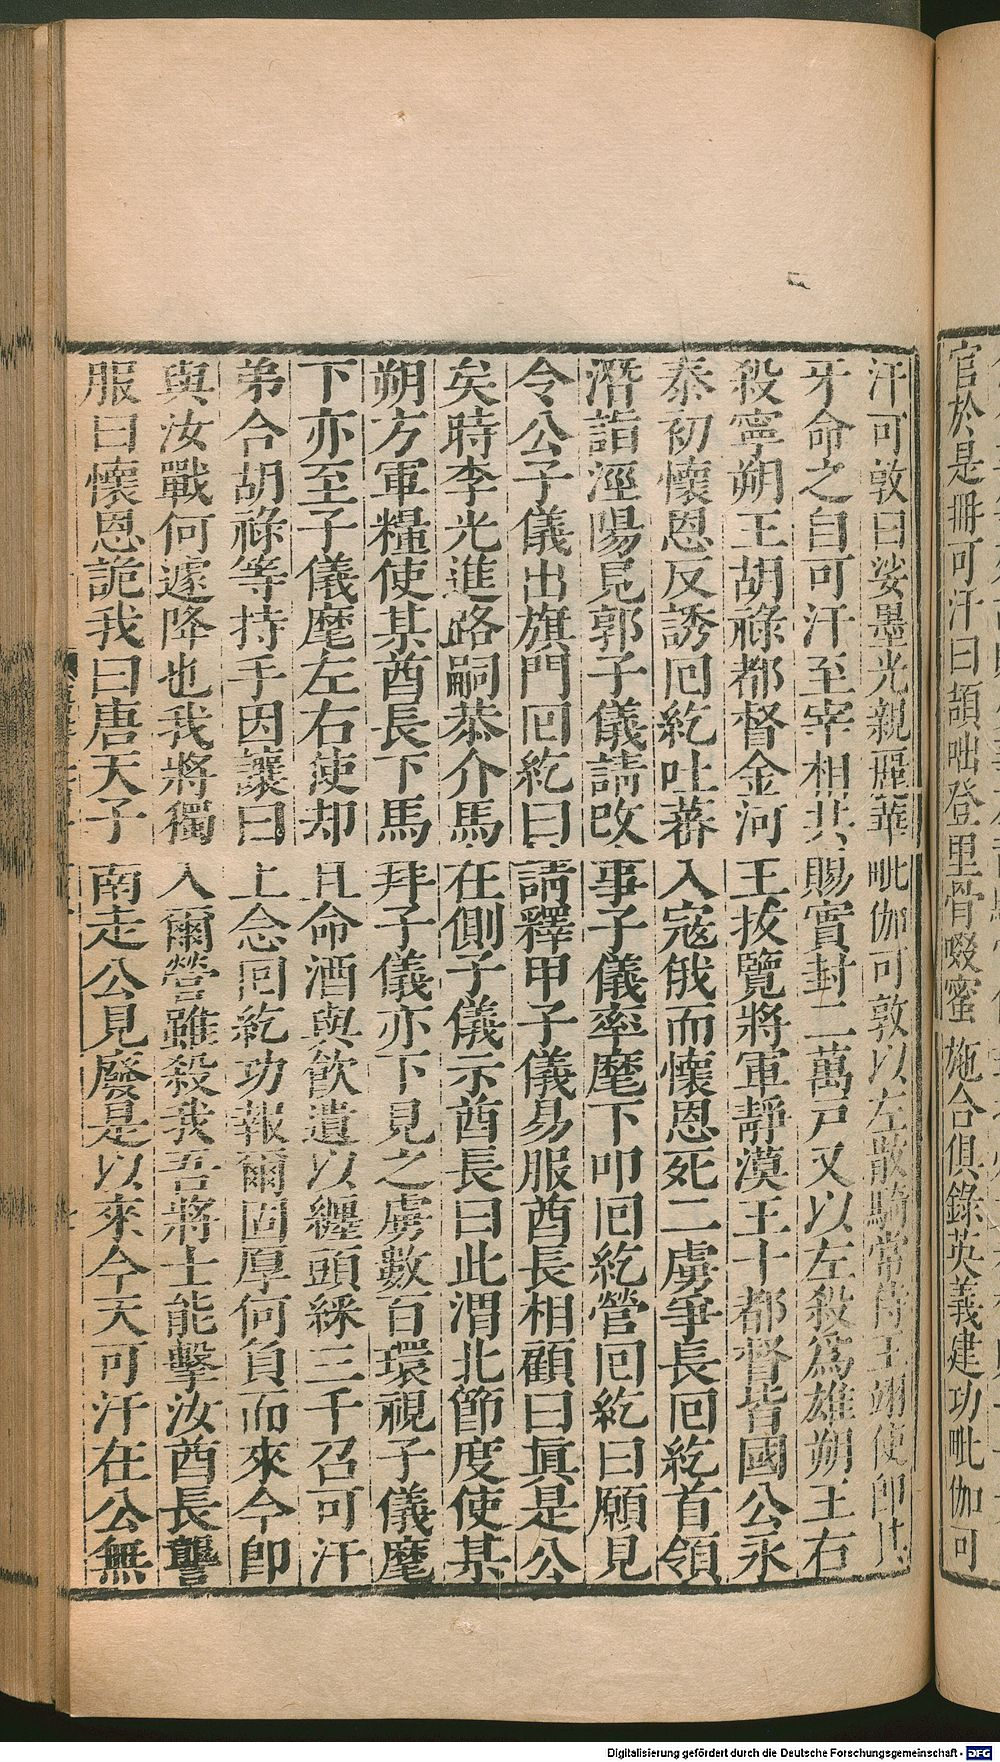 官於是冊可汗曰頡咄登里骨啜蜜施合俱錄英義建功毗伽可
汗可敦曰娑墨光親麗華毗伽可敦以左散騎常侍王翊使即其
牙命之自可汗至宰相共賜實封二萬戶又以左殺爲雄朔王右
殺寧朔王胡祿都督金河王拔覽將軍靜漠王十都督皆國公永
泰初懷恩反誘囘紇吐蕃入寇俄而懷恩死二虜爭長囘紇首領
潛詣涇陽見郭子儀請改事子儀率麾下叩囘紇營囘紇曰願見
令公子儀出旗門囘紇曰請釋甲子儀易服酋長相顧曰眞是公
矣時李光進路嗣恭介馬在側子儀示酋長曰此渭北節度使某
朔方軍糧使某酋長下馬拜子儀亦下見之虜數百環視子儀麾
下亦至子儀麾左右使却且命酒與飲遺以纏頭綵三千召可汗
弟合胡祿等持手因讓曰上念囘紇功報爾固厚何負而來今卽
與汝戰何遽降也我將獨入爾營雖殺我吾將士能擊汝酋長讋
服曰懷恩詭我曰唐天子南走公見廢是以來今天可汗在公無
Digitalisierung gefördert durch die Deutsche Forschungsgemeinschaft - DFG